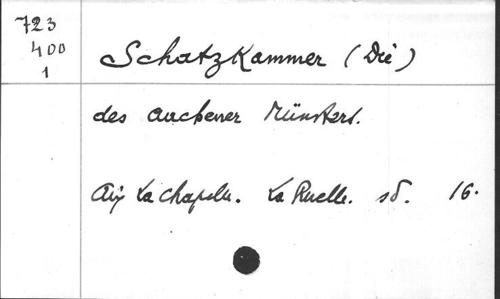 723
400
1
Schatzkammer (Die)
des aachener Münsters.
Aix La Chapelle. La Ruelle. sd. 16.